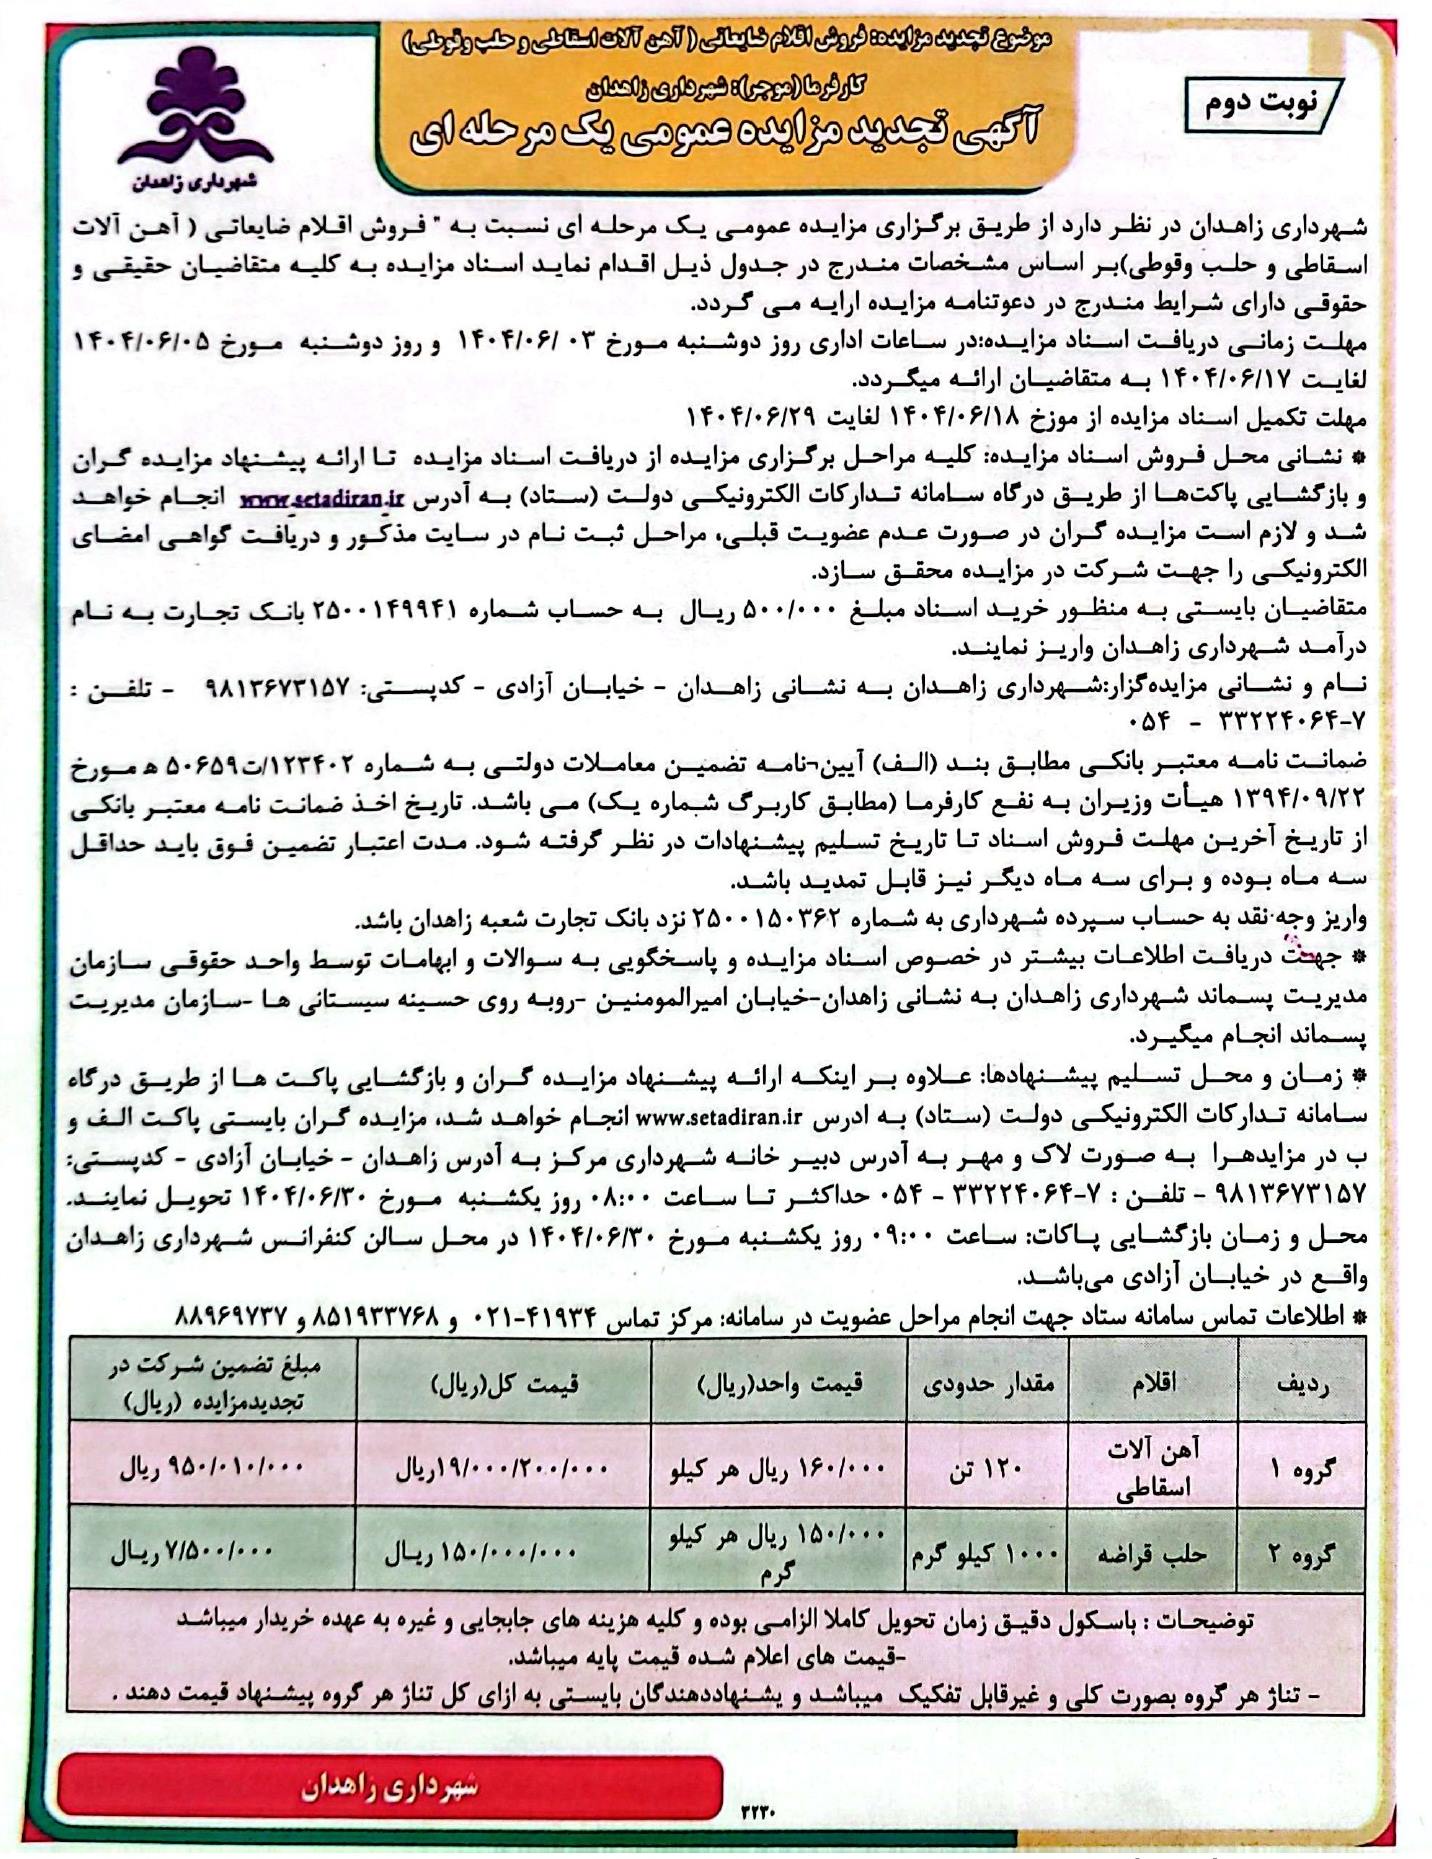 موضوع تجدید مزایده: فروش اقلام ضایعاتی ( آهن آلات اسقاطی و حلب وقوطی)
کارفرما (موجر): شهرداری زاهدان
آگهی تجدید مزایده عمومی یک مرحله ای
نوبت دوم
شهرداری زاهدان
شهرداری زاهدان در نظر دارد از طریق برگزاری مزایده عمومی یک مرحله ای نسبت به " فروش اقلام ضایعاتی ( آهن آلات
اسقاطی و حلب وقوطی)بر اساس مشخصات مندرج در جدول ذیل اقدام نماید اسناد مزایده به کلیه متقاضیان حقیقی و
حقوقی دارای شرایط مندرج در دعوتنامه مزایده ارایه می گردد.
مهلت زمانی دریافت اسناد مزایده:در ساعات اداری روز دوشنبه مورخ ۰۳ /۱۴۰۴/۰۶ و روز دوشنبه مورخ ۱۴۰۴/۰۶/۰۵
لغایت ۱۴۰۴/۰۶/۱۷ به متقاضیان ارائه میگردد.
مهلت تکمیل اسناد مزایده از موزخ ۱۴۰۴/۰۶/۱۸ لغایت ۱۴۰۴/۰۶/۲۹
* نشانی محل فروش اسناد مزایده: کلیه مراحل برگزاری مزایده از دریافت اسناد مزایده تا ارائه پیشنهاد مزایده گران
و بازگشایی پاکت‌ها از طریق درگاه سامانه تدارکات الکترونیکی دولت (ستاد) به آدرس www.setadiran.ir انجام خواهد
شد و لازم است مزایده گران در صورت عدم عضویت قبلی، مراحل ثبت نام در سایت مذکور و دریافت گواهی امضای
الکترونیکی را جهت شرکت در مزایده محقق سازد.
متقاضیان بایستی به منظور خرید اسناد مبلغ ۵۰۰/۰۰۰ ریال به حساب شماره ۲۵۰۰۱۴۹۹۴۱ بانک تجارت به نام
درآمد شهرداری زاهدان واریز نمایند.
نام و نشانی مزایده‌گزار:شهرداری زاهدان به نشانی زاهدان - خیابان آزادی - کدپستی: ۹۸۱۳۶۷۳۱۵۷ - تلفن :
۳۳۲۲۴۰۶۴-۷ - ۰۵۴
ضمانت نامه معتبر بانکی مطابق بند (الف) آیین¬نامه تضمین معاملات دولتی به شماره ۱۲۳۴۰۲/ت۵۰۶۵۹ ه مورخ
۱۳۹۴/۰۹/۲۲ هیأت وزیران به نفع کارفرما (مطابق کاربرگ شماره یک) می باشد. تاریخ اخذ ضمانت نامه معتبر بانکی
از تاریخ آخرین مهلت فروش اسناد تا تاریخ تسلیم پیشنهادات در نظر گرفته شود. مدت اعتبار تضمین فوق باید حداقل
سه ماه بوده و برای سه ماه دیگر نیز قابل تمدید باشد.
واریز وجه نقد به حساب سپرده شهرداری به شماره ۲۵۰۰۱۵۰۳۶۲ نزد بانک تجارت شعبه زاهدان باشد.
* جهت دریافت اطلاعات بیشتر در خصوص اسناد مزایده و پاسخگویی به سوالات و ابهامات توسط واحد حقوقی سازمان
مدیریت پسماند شهرداری زاهدان به نشانی زاهدان-خیابان امیرالمومنین -روبه روی حسینه سیستانی ها -سازمان مدیریت
پسماند انجام میگیرد.
* زمان و محل تسلیم پیشنهادها: علاوه بر اینکه ارائه پیشنهاد مزایده گران و بازگشایی پاکت ها از طریق درگاه
سامانه تدارکات الکترونیکی دولت (ستاد) به ادرس www.setadiran.ir انجام خواهد شد، مزایده گران بایستی پاکت الف و
ب در مزایدهرا به صورت لاک و مهر به آدرس دبیر خانه شهرداری مرکز به آدرس زاهدان - خیابان آزادی - کدپستی:
۹۸۱۳۶۷۳۱۵۷ - تلفن : ۷-۳۳۲۲۴۰۶۴ - ۰۵۴ حداکثر تا ساعت ۰۸:۰۰ روز یکشنبه مورخ ۱۴۰۴/۰۶/۳۰ تحویل نمایند.
محل و زمان بازگشایی پاکات: ساعت ۰۹:۰۰ روز یکشنبه مورخ ۱۴۰۴/۰۶/۳۰ در محل سالن کنفرانس شهرداری زاهدان
واقع در خیابان آزادی می‌باشد.
* اطلاعات تماس سامانه ستاد جهت انجام مراحل عضویت در سامانه: مرکز تماس ۴۱۹۳۴-۰۲۱ و ۸۵۱۹۳۳۷۶۸ و ۸۸۹۶۹۷۳۷
ردیف اقلام مقدار حدودی قیمت واحد(ریال) قیمت کل(ریال) مبلغ تضمین شرکت در
تجدیدمزایده (ریال)
گروه ۱ آهن آلات
اسقاطی ۱۲۰ تن ۱۶۰/۰۰۰ ریال هر کیلو ۱۹/۰۰۰/۲۰۰/۰۰۰ریال ۹۵۰/۰۱۰/۰۰۰ ریال
گروه ۲ حلب قراضه ۱۰۰۰ کیلو گرم ۱۵۰/۰۰۰ ریال هر کیلو
گرم ۱۵۰/۰۰۰/۰۰۰ ریال ۷/۵۰۰/۰۰۰ ریال
توضیحات : باسکول دقیق زمان تحویل کاملا الزامی بوده و کلیه هزینه های جابجایی و غیره به عهده خریدار میباشد
-قیمت های اعلام شده قیمت پایه میباشد.
- تناژ هر گروه بصورت کلی و غیرقابل تفکیک میباشد و یشنهاددهندگان بایستی به ازای کل تناژ هر گروه پیشنهاد قیمت دهند .
شهرداری زاهدان
۳۲۳۰